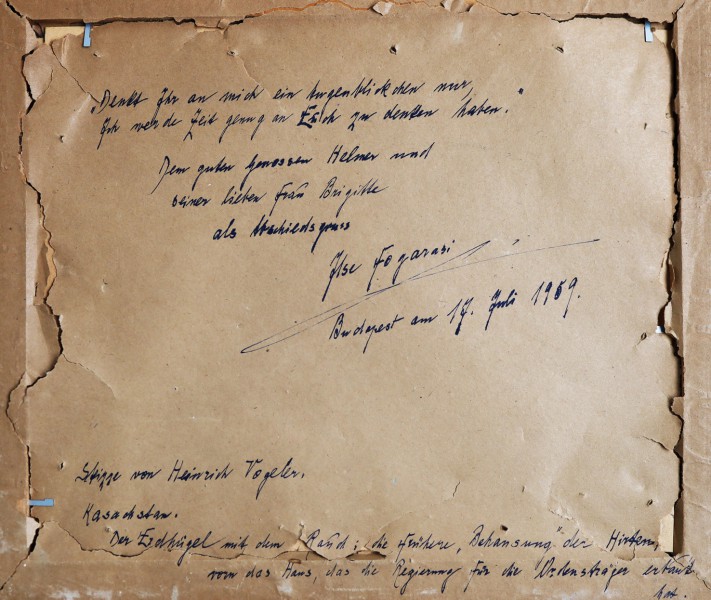 „Denkt Ihr an mich ein Augenblickchen nur,
Ich werde Zeit genug an Euch zu denken haben."
Dem guten Genossen Helmer und
seiner lieben Frau Brigitte
als Abschiedsgruss
Ilse Fogarasi
Budapest am 17. Juli 1959.
Skizze von Heinrich Vogeler.
Kasachstan.
Der Erdhügel mit dem Rauch: die frühere „Behausung" der Hirten,
vorn das Haus, das die Regierung für die Ordensträger erbaut
hat.